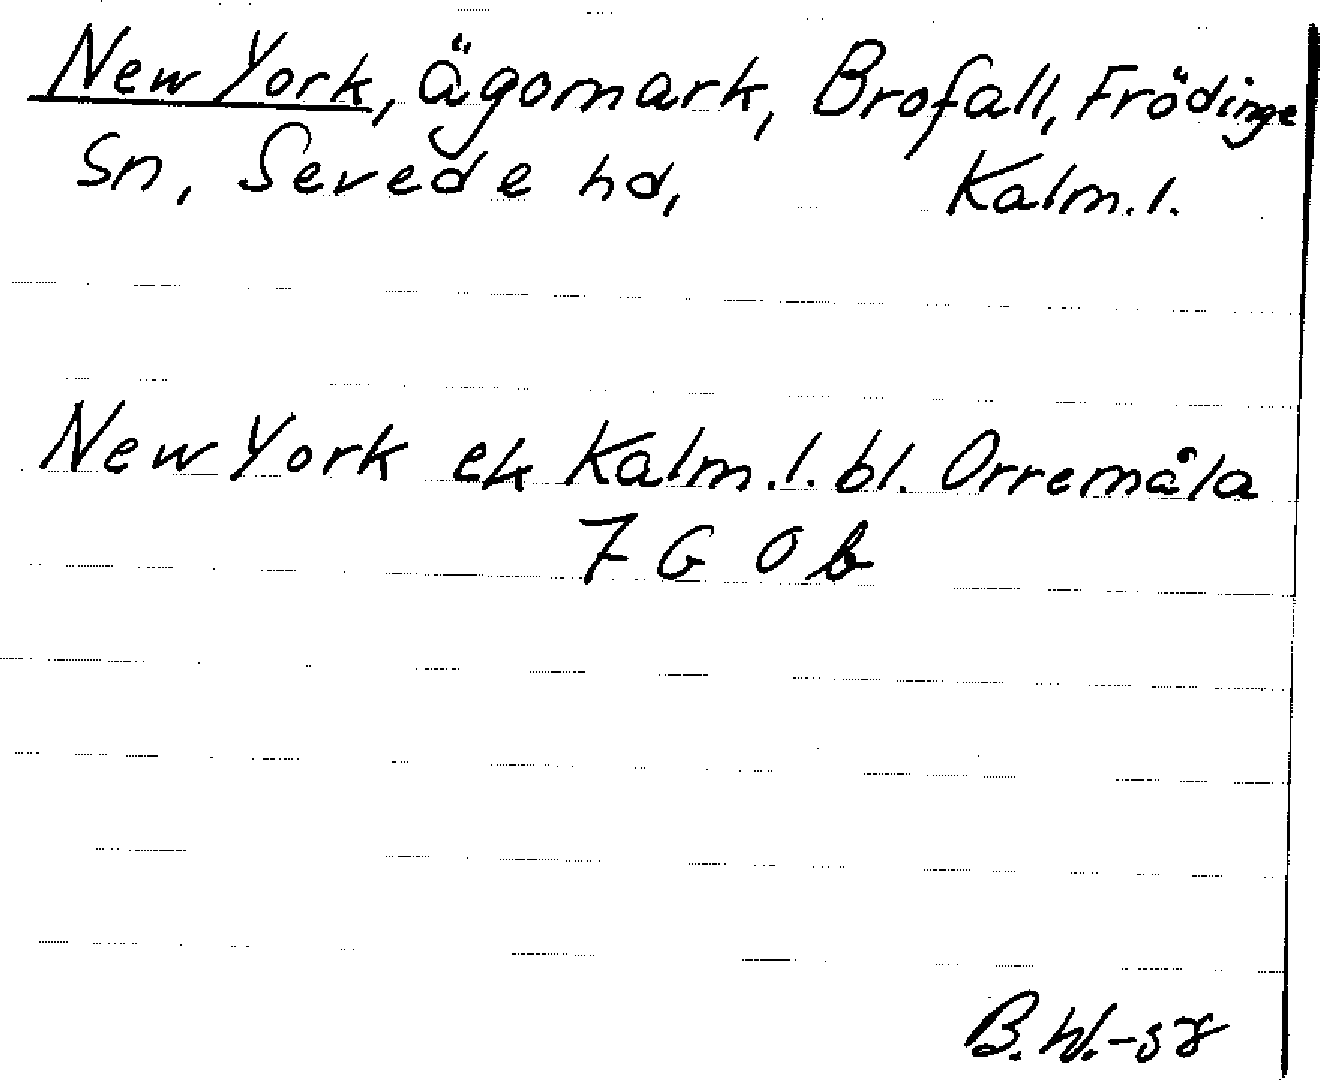 New York, ägomark, Brofall, Frödinge
Sn, Sevede hd, Kalm. l.
New York ek Kalm. l. bl. Orremåla
7 G 0 b
B. W. -58